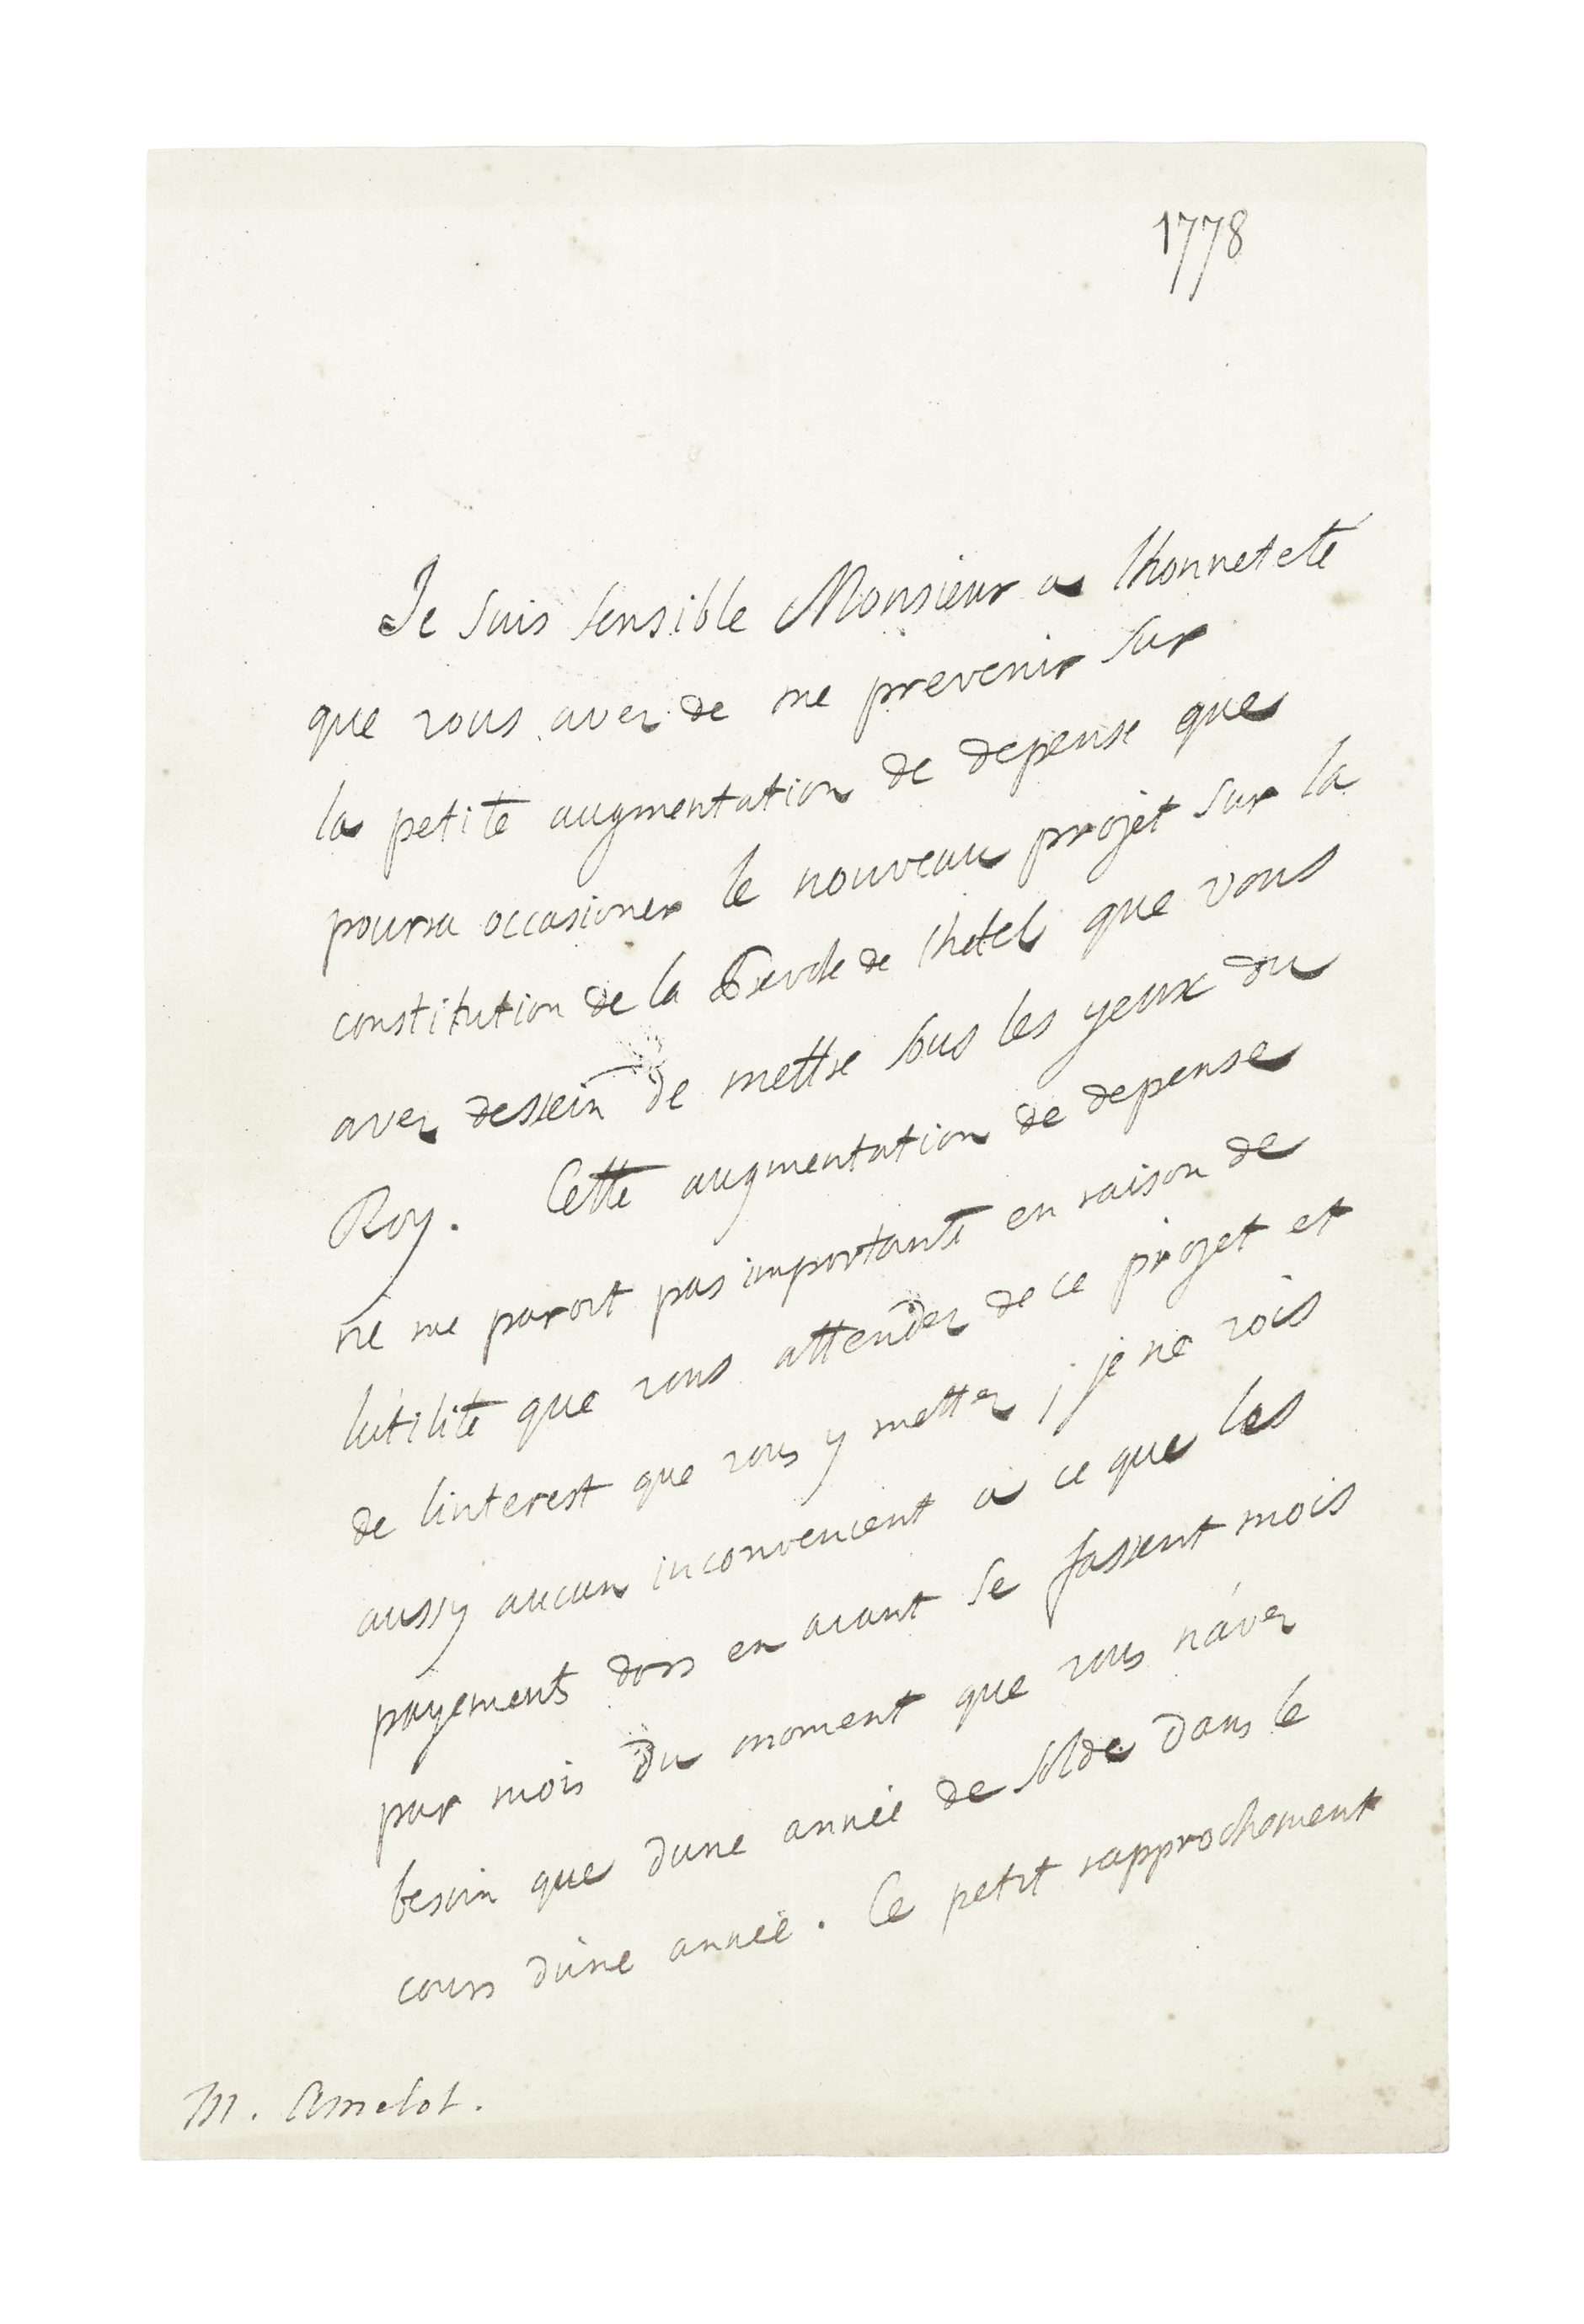 1778
Je suis sensible Monsieur a lhonneteté
que vous avez de me prevenir sur
la petite augmentation de depense que
poura occasioner le nouveau projet sur la
constitution de la de lhotel que vous
avez dessein de mettre sous les yeux du
Roy. Cette augmentation de depense
ne me paroit pas importante en raison de
lutilité que vous attendez de ce projet et
de linterest que vous y mettez ; je ne vois
aussy aucun inconvenient a ce que les
payements dors en avant se fassent mois
par mois du moment que vous n'avez
besoin que dune année de solde dans le
cours d'une année. Ce petit rapprochement
M. Amelot.